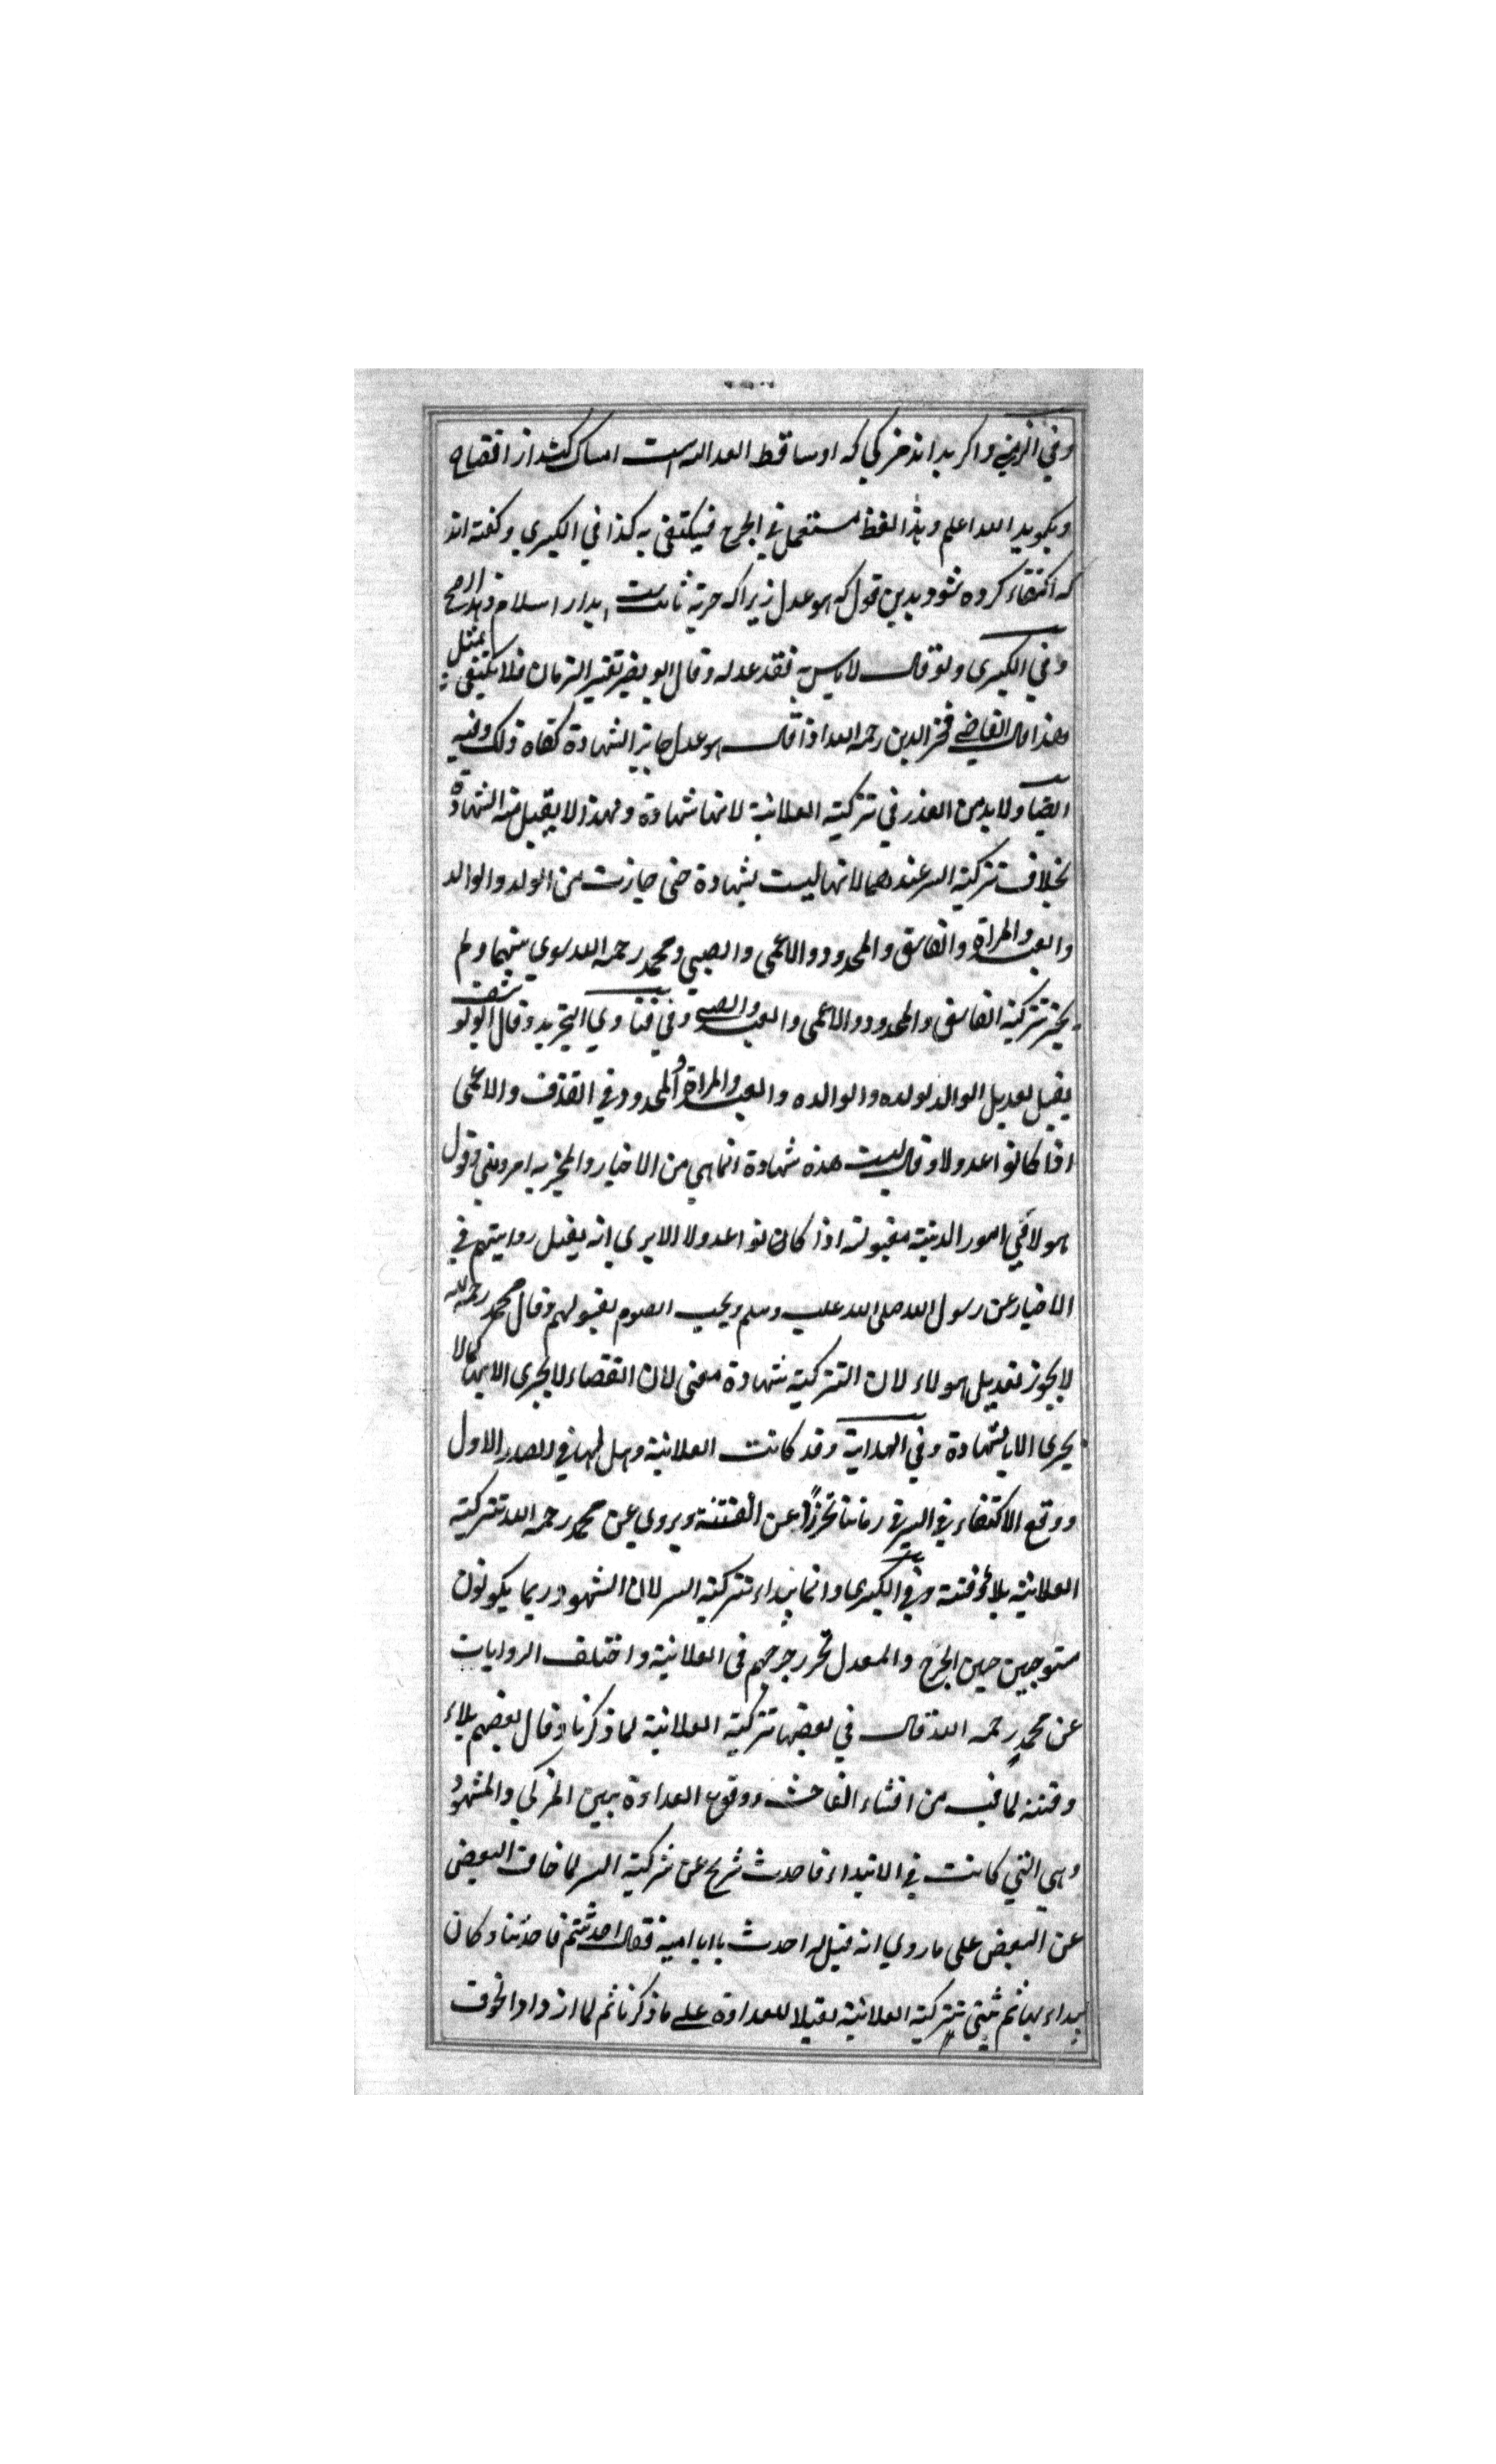 وفي الزيني واكر بداند مزكي كه او ساقط العدالة است امساك كند از افتضاح
وبكويد الله اعلم وهذا لفظ مستعمل في الجرح فيكتفى به كذا في الكبرى وكفته اند
كه اكتفاء كرده شود بدين قول كه هو عدل زيراكه حرية ثابت است بدار اسلام وهو الاصح
وفي الكبرى ولو قال لا باس به فقد عدله وقال ابو نصر تغير الزمان فلا يكتفى بمثل
هذا قال القاضي فخر الدين رحمه الله اذا قال هو عدل جايز الشهادة كفاه ذلك وفيه
ايضا ولا بد من العذر في تزكية العلانية لانها شهادة ولهذا لا يقبل منه الشهادة
بخلاف تزكية السر عندهما لانها ليست بشهادة حتى جازت من الولد والوالد
والعبد والمراة والفاسق والمحدود والاعمى والصبي ومحمد رحمه الله سوى بينهما ولم
يجز تزكية الفاسق والمحدود والاعمى والعبد والصبي وفي فتاوي التجريد وقال ابو يوسف
يقبل تعديل الوالد لولده والوالده والعبد والمراة والمحدود في القذف والاعمى
اذا كانوا عدولا وقال ليست هذه شهادة انما هي من الاخبار والمخبر به امر ديني وقول
هولا في امور الدنية مقبولة اذا كانوا عدولا الا يرى انه يقبل روايتهم في
الاخبار عن رسول الله صلى الله عليه وسلم ويجب الصوم بقبولهم وقال محمد رحمه الله
لا يجوز تعديل هولاء لان التزكية شهادة معنى لان القضاء لا يجرى الا بها كما لا
يجرى الا بالشهادة وفي الهداية وقد كانت العلانية وحدها في الصدر الاول
ووقع الاكتفاء في السر في زماننا تحرزا عن الفتنة ويروي عن محمد رحمه الله تزكية
العلانية بلاء وفتنة وفي الكبرى وانما يبداء تزكية السر لان الشهود ربما يكونون
مستوجبين حين الجرح والمعدل تحرر جرحهم في العلانية واختلف الروايات
عن محمد رحمه الله قال في بعضها تزكية العلانية لما ذكرنا وقال بعضهم بلاء
وفتنة لما فيه من افشاء الفاحش ووقوع العداوة بين المزكي والمشهود
وهي التي كانت في الابتداء فاحدث شريح عن تزكية السر لما خاف البعض
عن البعض على ما روي انه قيل له احدث يا ابا امية فقال احدثتم فاحدثنا وكان
يبداء بها ثم يثني بتزكية العلانية تقليلا للعداوة على ما ذكرنا ثم لما ازداد الخوف